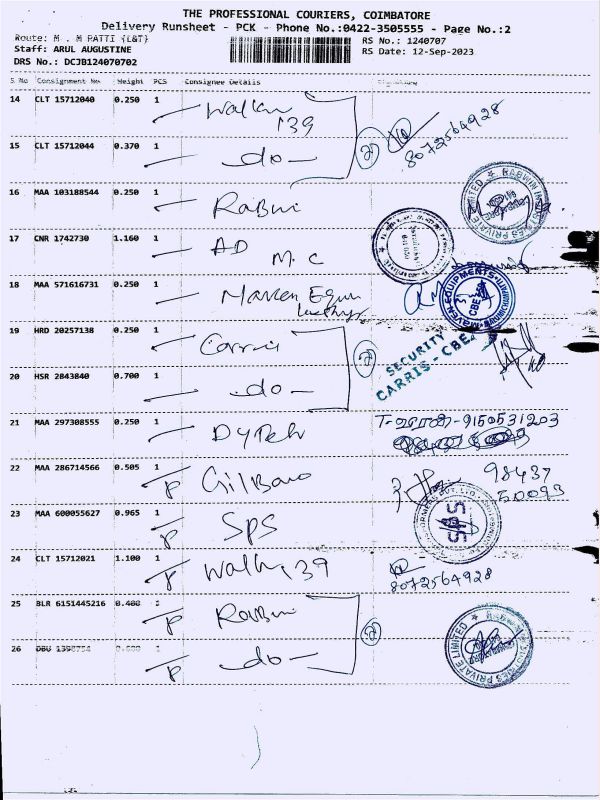 THE PROFESSIONAL COURIERS, COIMBATORE
Delivery Runsheet - PCK - Phone No.:0422-3505555 - Page No.:2
Route: M . M PATTI {L&T} RS No.: 1240707
Staff: ARUL AUGUSTINE RS Date: 12-Sep-2023
DRS No.: DCJB124070702
S No Consignment No Weight PCS Consignee Details Signature
14 CLT 15712040 0.250 1 Walkn 139
8072564928
15 CLT 15712044 0.370 1 -do-
16 MAA 103188544 0.250 1 Rabwi
17 CNR 1742730 1.160 1 AD M.C
18 MAA 571616731 0.250 1 Maven Equi
MAVEN EQUIPMENTS
CBE
19 HRD 20257138 0.250 1 Carris
SECURITY
CARRIS - CBE
20 HSR 2843840 0.700 1 -do-
21 MAA 297308555 0.250 1 Dytek 9150531203
22 MAA 286714566 0.505 1 P Gilbarco 98437
50093
23 MAA 600055627 0.965 1 P SPS
SPS
24 CLT 15712021 1.100 1 P Walkn 139
8072564928
25 BLR 6151445216 0.400 1 P Rabwi
26 DBU 1398754 0.600 1 P -do-